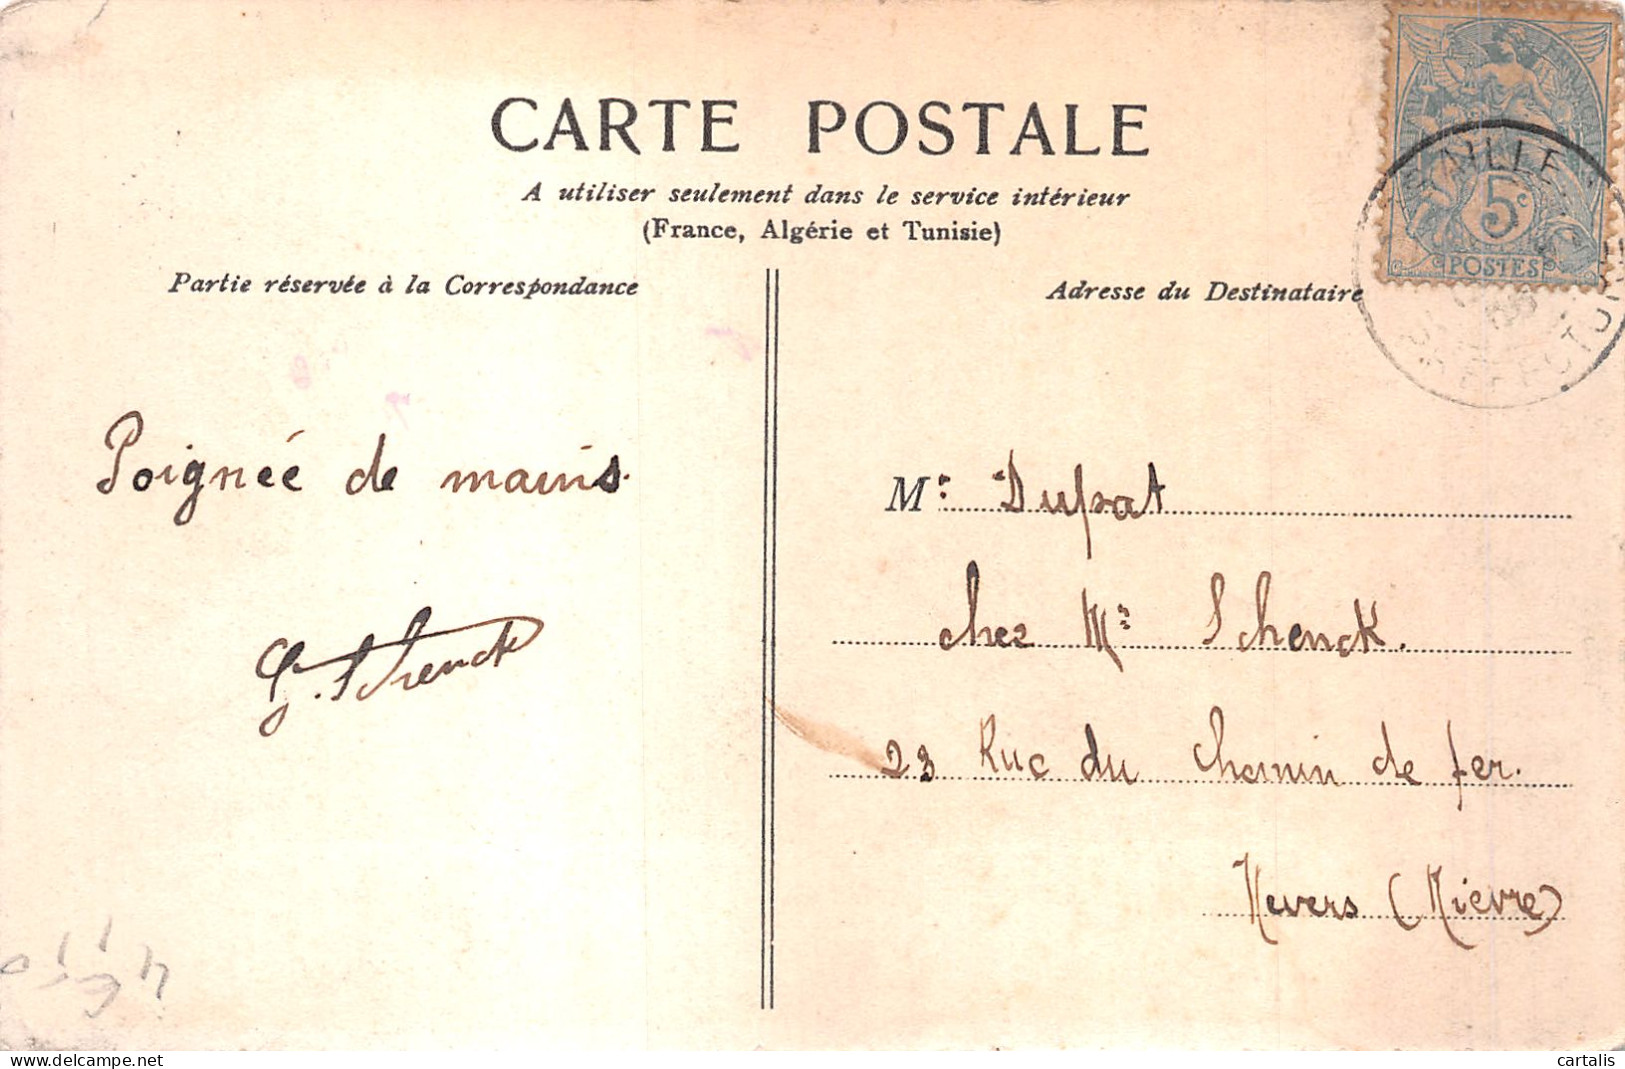 CARTE POSTALE
A utiliser seulement dans le service intérieur
(France, Algérie et Tunisie)
Partie réservée à la Correspondance
Adresse du Destinataire
5c
POSTES
Poignée de mains.
G. Schenck
Mr Duprat
chez Mr Schenck.
23 Rue du Chemin de fer.
Nevers (Nièvre)
delcampe.net
cartalis